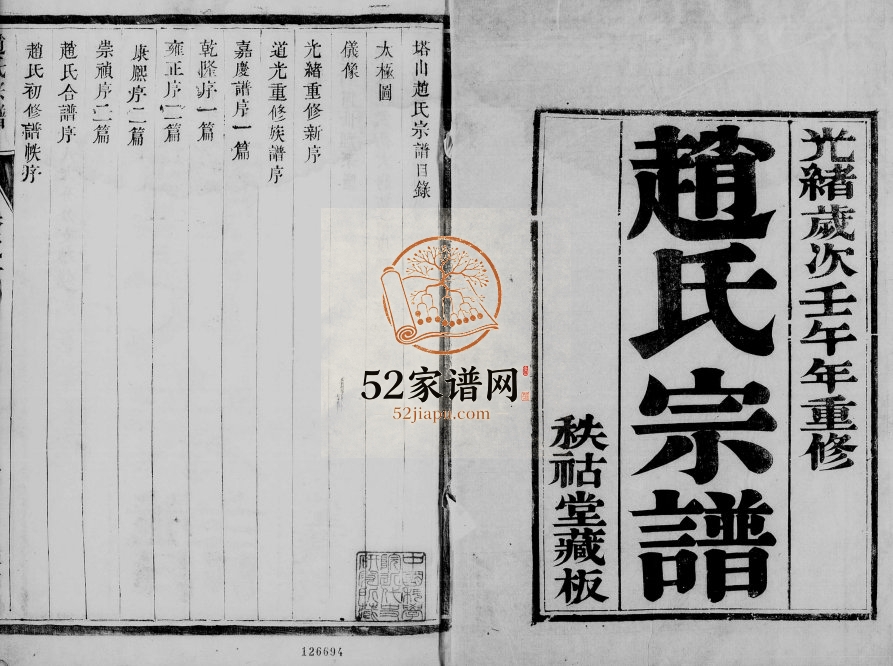 光緒歲次壬午年重修
趙氏宗譜
秩祜堂藏板
塔山趙氏宗譜目錄
太極圖
儀像
光緒重修新序
道光重修族譜序
嘉慶譜序一篇
乾隆序一篇
雍正序二篇
康熙序二篇
崇禎序二篇
趙氏合譜序
趙氏初修譜帙序
52家谱网
52jiapu.com
126694